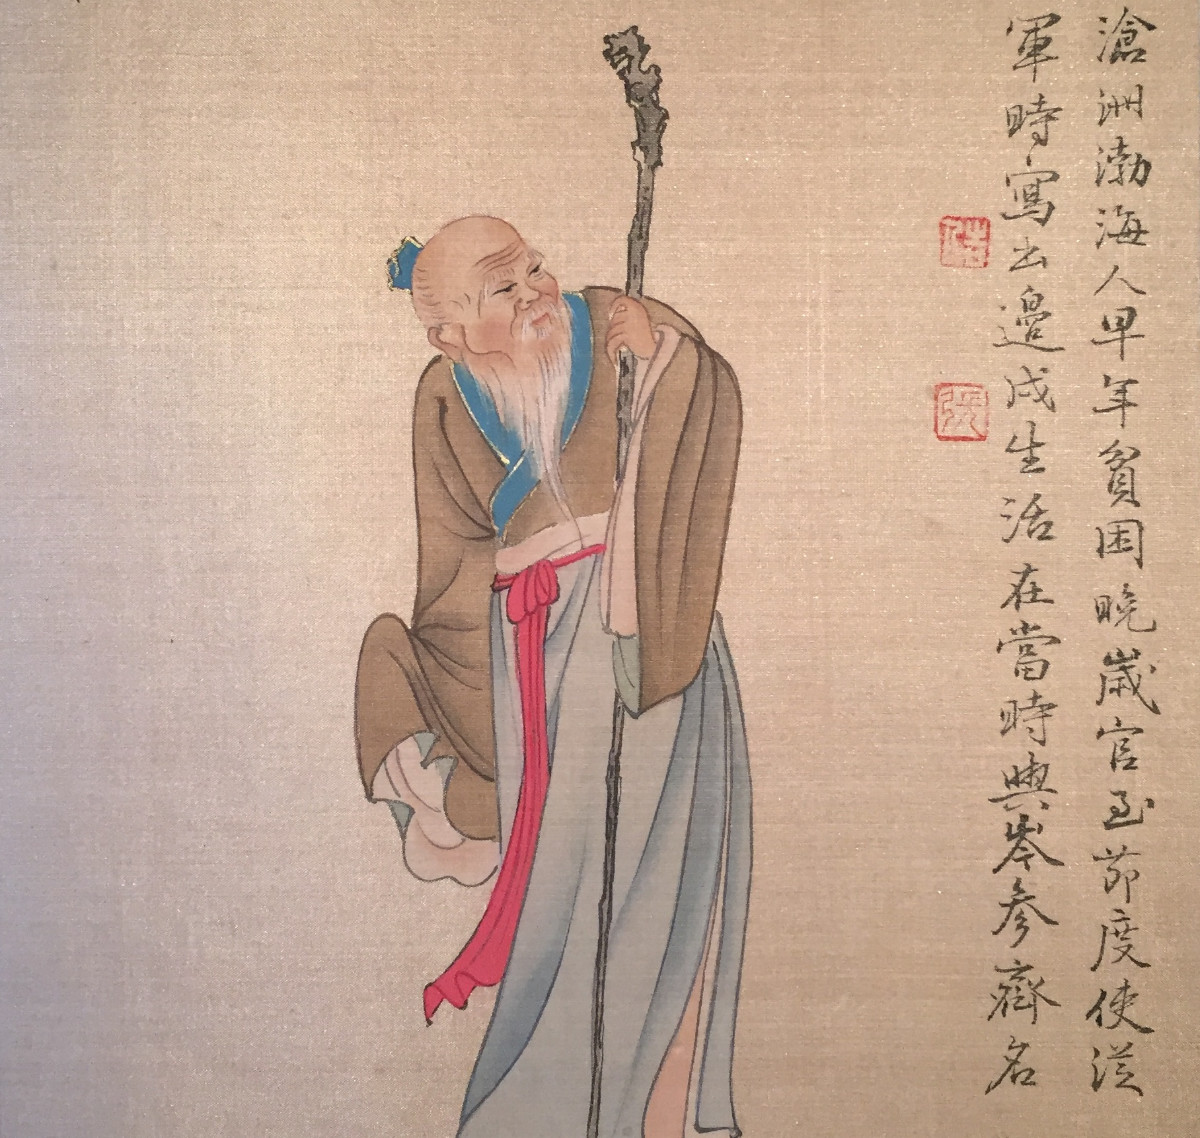 滄洲渤海人早年貧困晚歲官至節度使從
軍時寫出邊戍生活在當時與岑參齊名